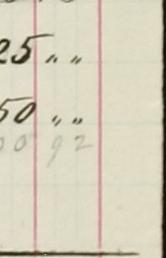 25 „ „
50 „ „
00 92